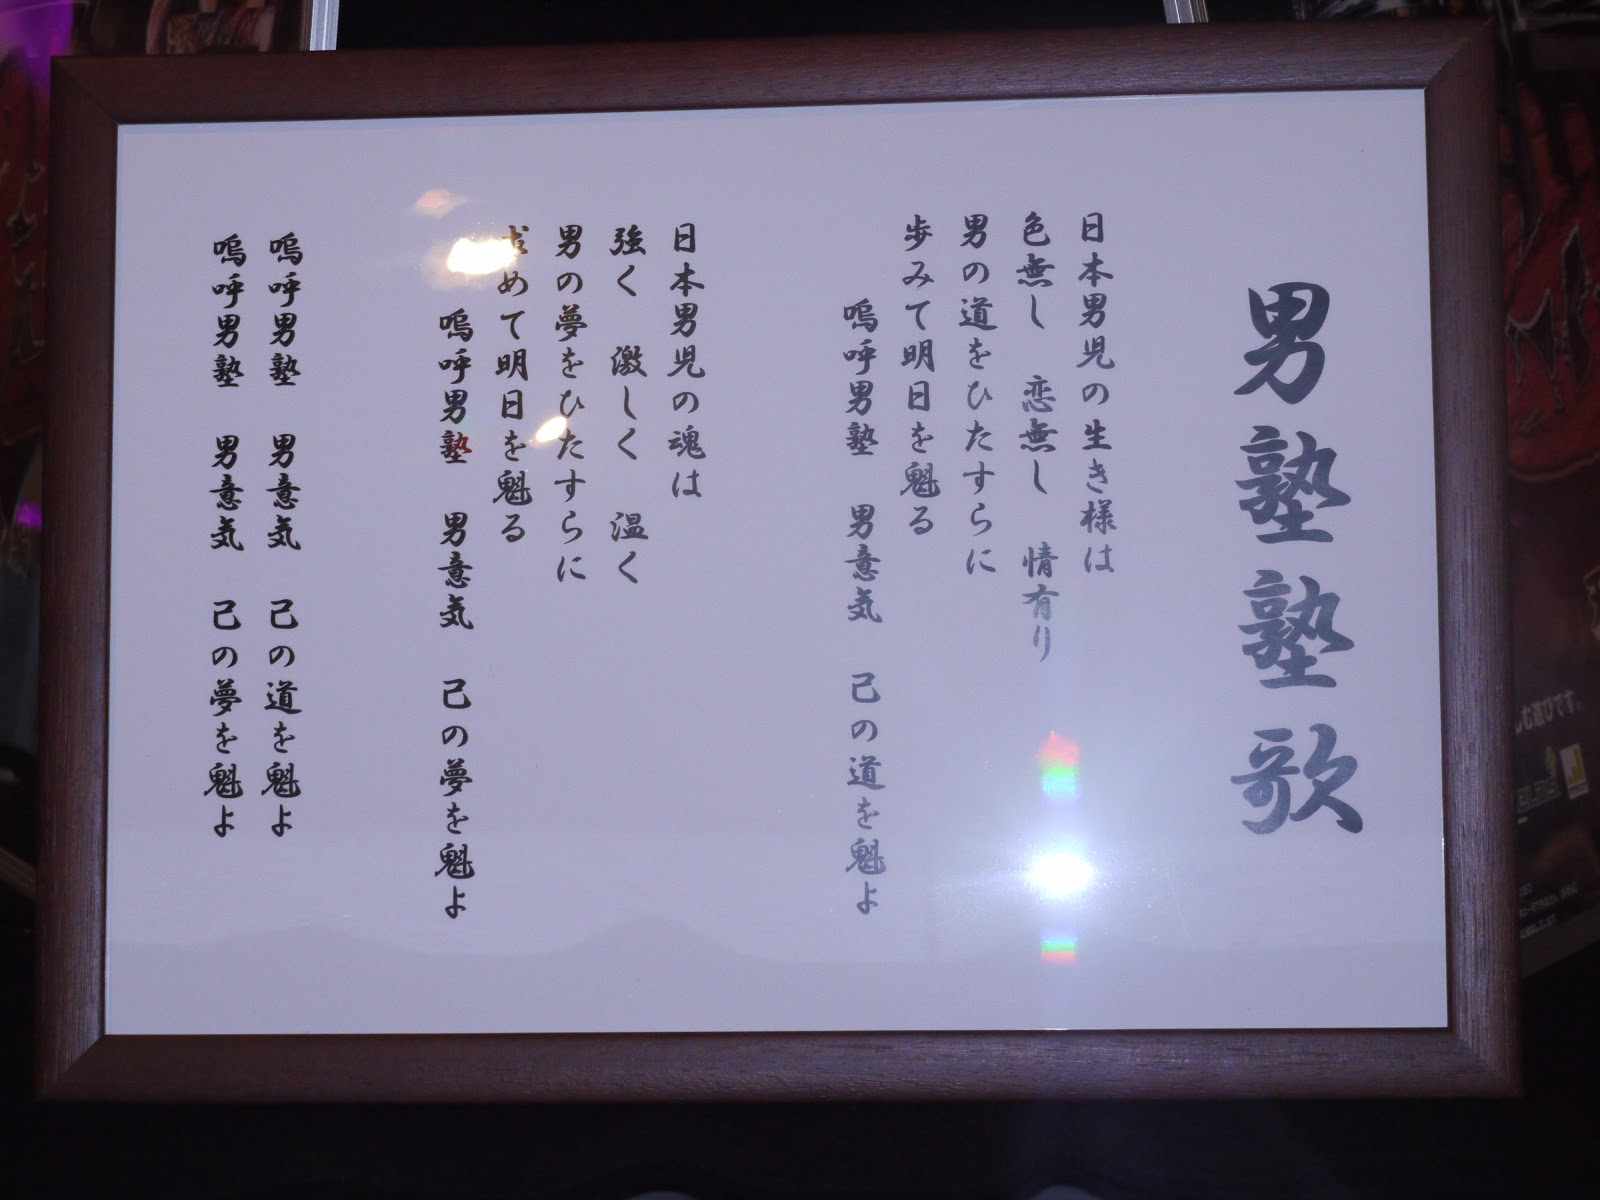 男塾塾歌
日本男児の生き様は
色無し 恋無し 情有り
男の道をひたすらに
歩みて明日を魁る
嗚呼男塾 男意気 己の道を魁よ
日本男児の魂は
強く 激しく 温く
男の夢をひたすらに
求めて明日を魁る
嗚呼男塾 男意気 己の夢を魁よ
嗚呼男塾 男意気 己の道を魁よ
嗚呼男塾 男意気 己の夢を魁よ
しむ遊びです。